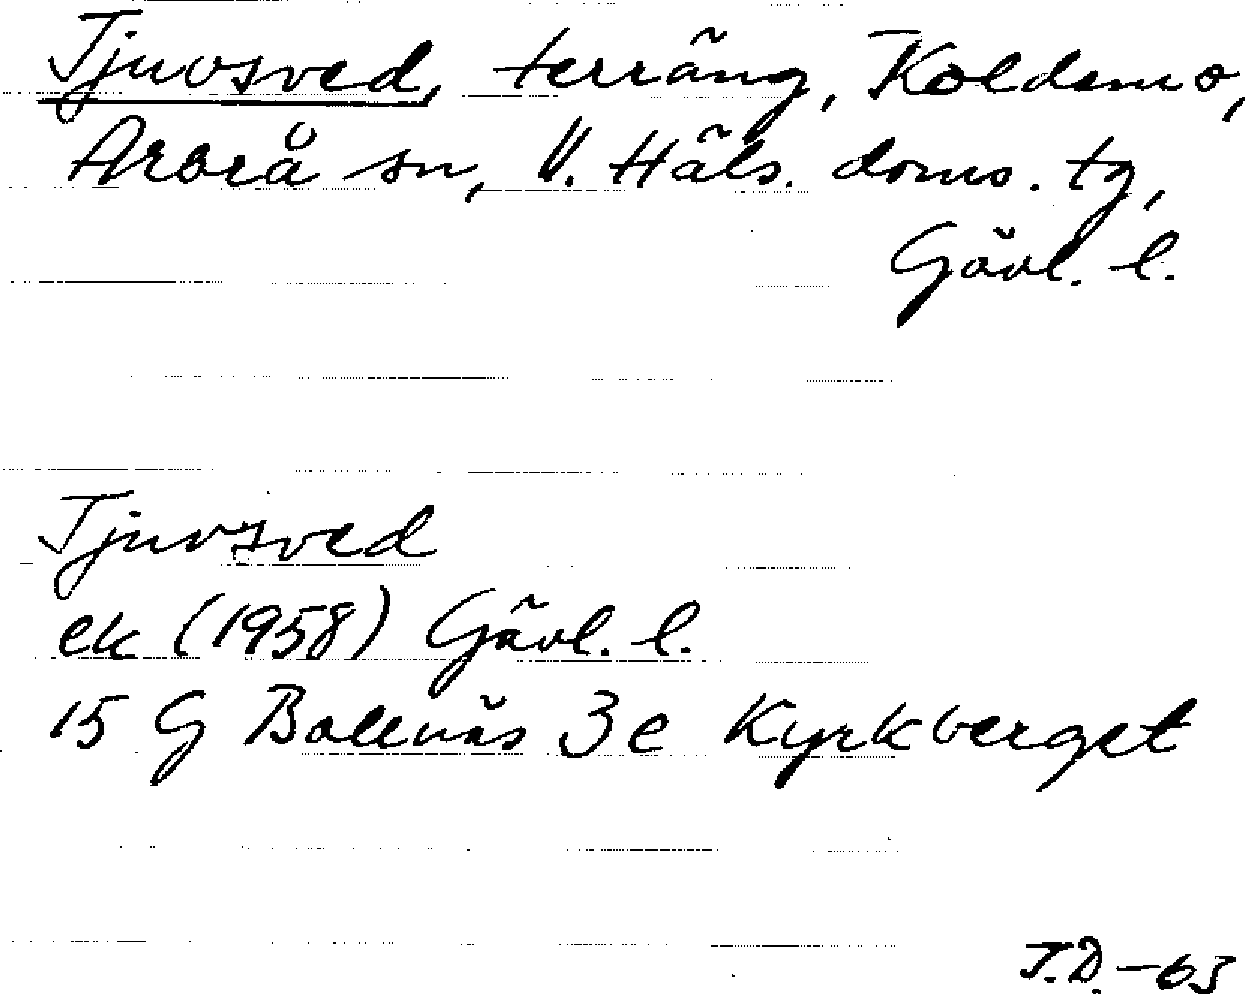 Tjuvsved, terräng, Koldemo,
Arbrå sn, V. Häls. doms. tg,
Gävl. l.
Tjuvsved
ek (1958) Gävl. l.
15 G Bollnäs 3 e Kyrkberget
J.D. -63